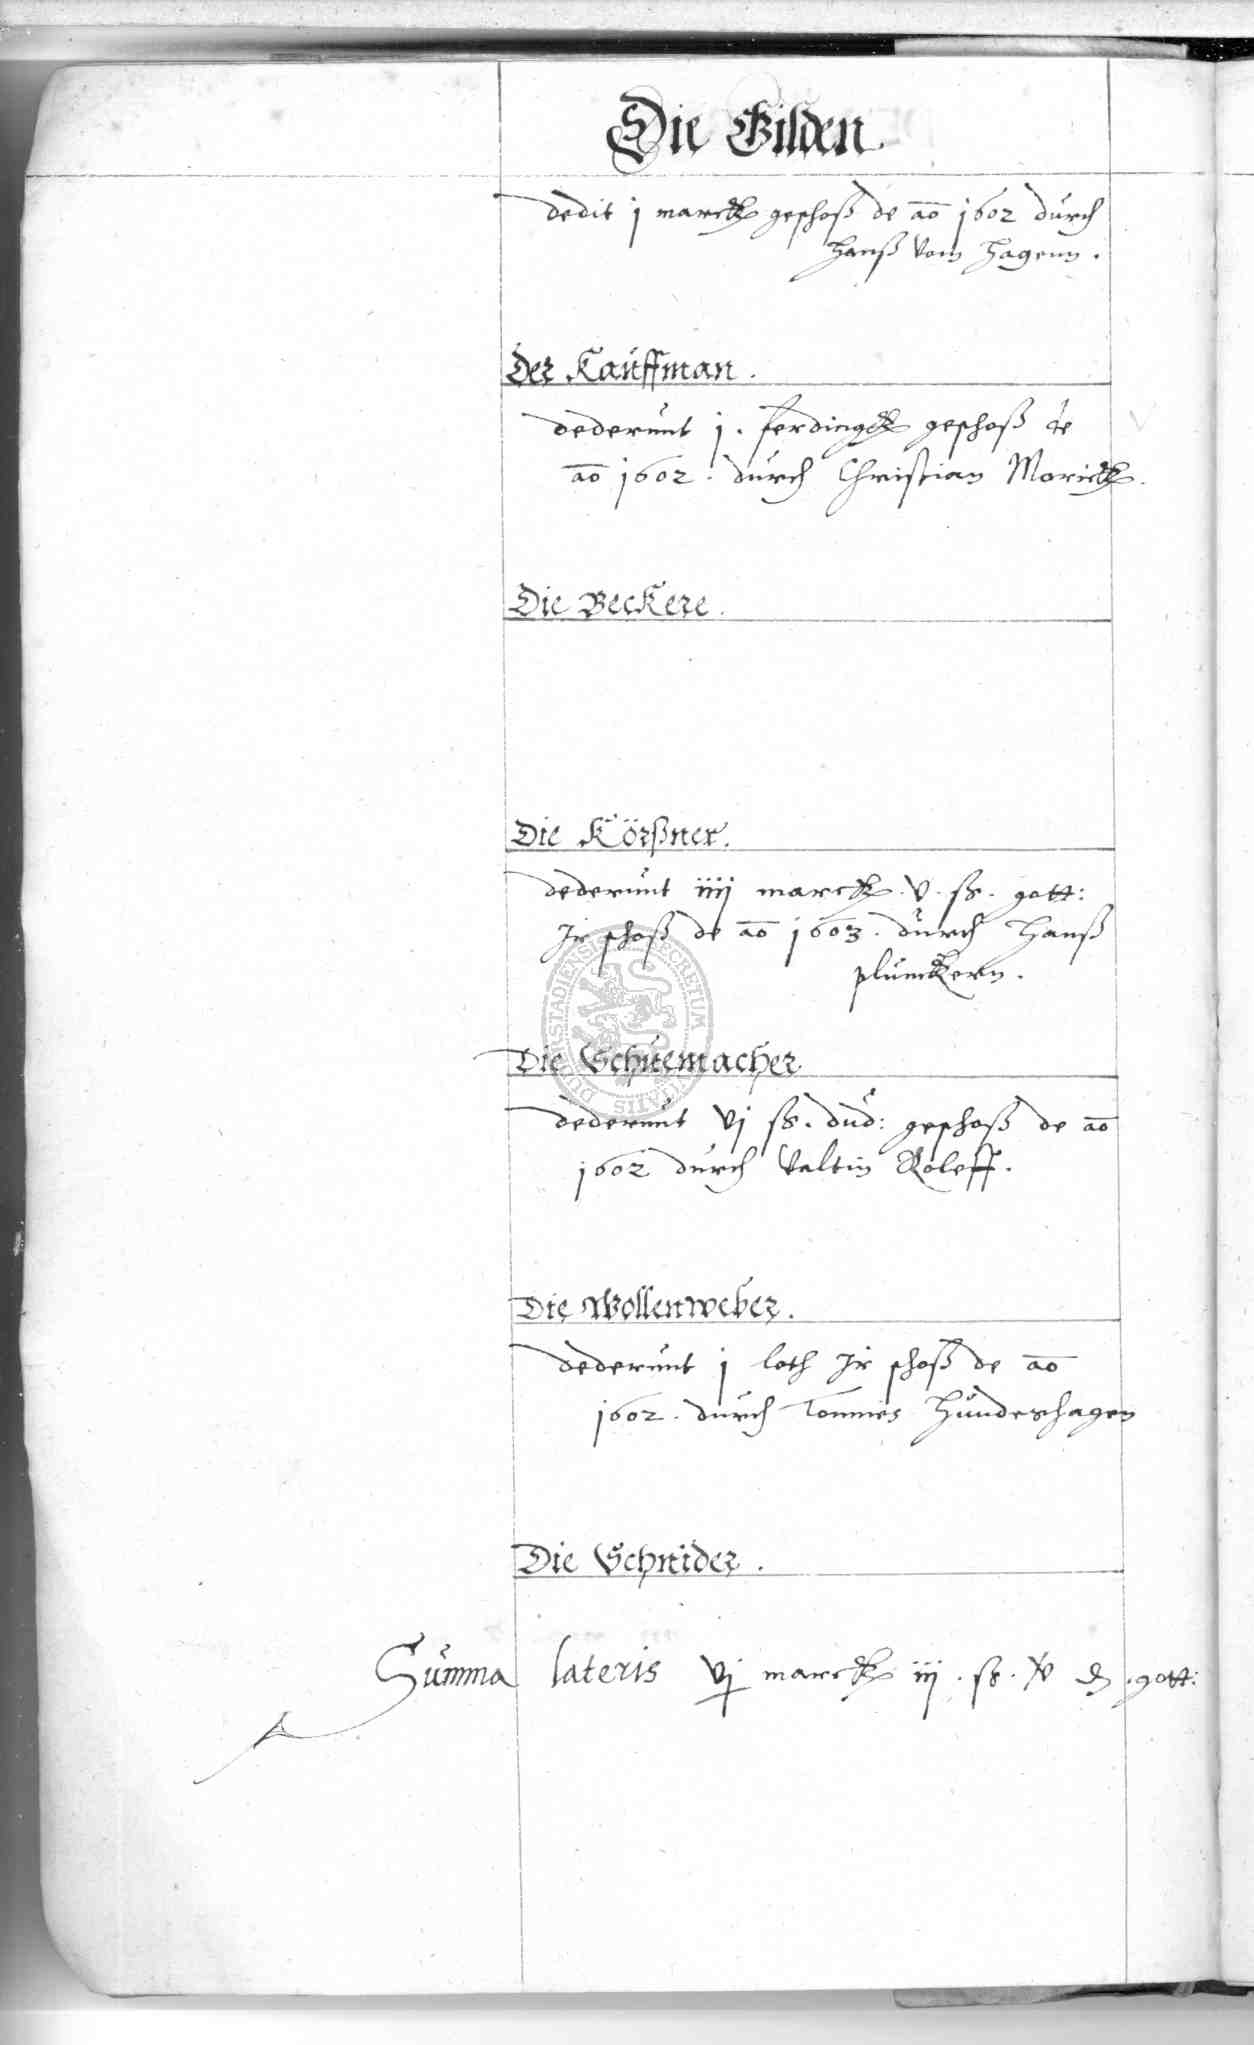 Die Gilden
dedit j marck geschoß de ao 1602 durch
Hanß vom Hagenn.
Der Kauffman.
dederunt j. ferdingk geschoß de
ao 1602. durch Christian Morick.
Die Beckere.
Die Körßner.
dederunt iiij marck. v. ß. gott:
Jr schoß de ao 1603. durch Hanß
plunckern.
Die Schuemacher
dederunt vj ß. dud: geschoß de ao
1602 durch Valtin Roleff.
Die Wollenweber.
dederunt j loth Jr schoß de ao
1602. durch Tonnies Hundeshagen
Die Schnider.
Summa lateris vj marck iij. ß. xv d. gott: